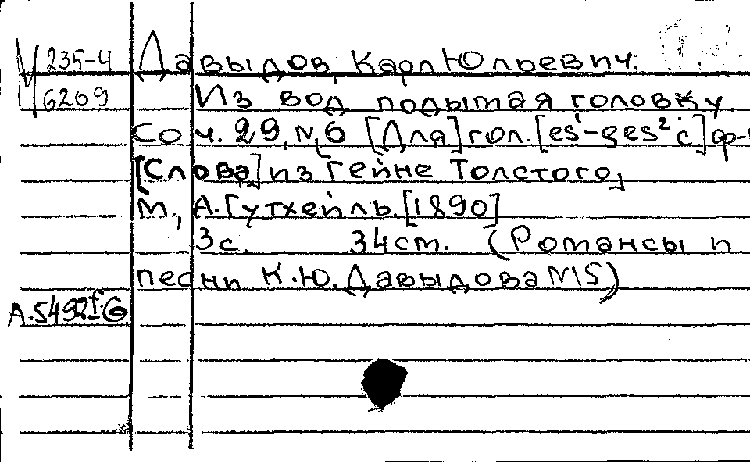 V 235-4 Давыдов, Карл Юльевич.
6269 Из вод подымая головку
Соч. 29, № 6 [Для] гол. [es'-ges² c] ф-
[Слова] из Гейне Толстого,
М., А. Гутхейль. [1890]
3с. 34 ст. (Романсы и
песни К.Ю. Давыдова № 5)
А.5492